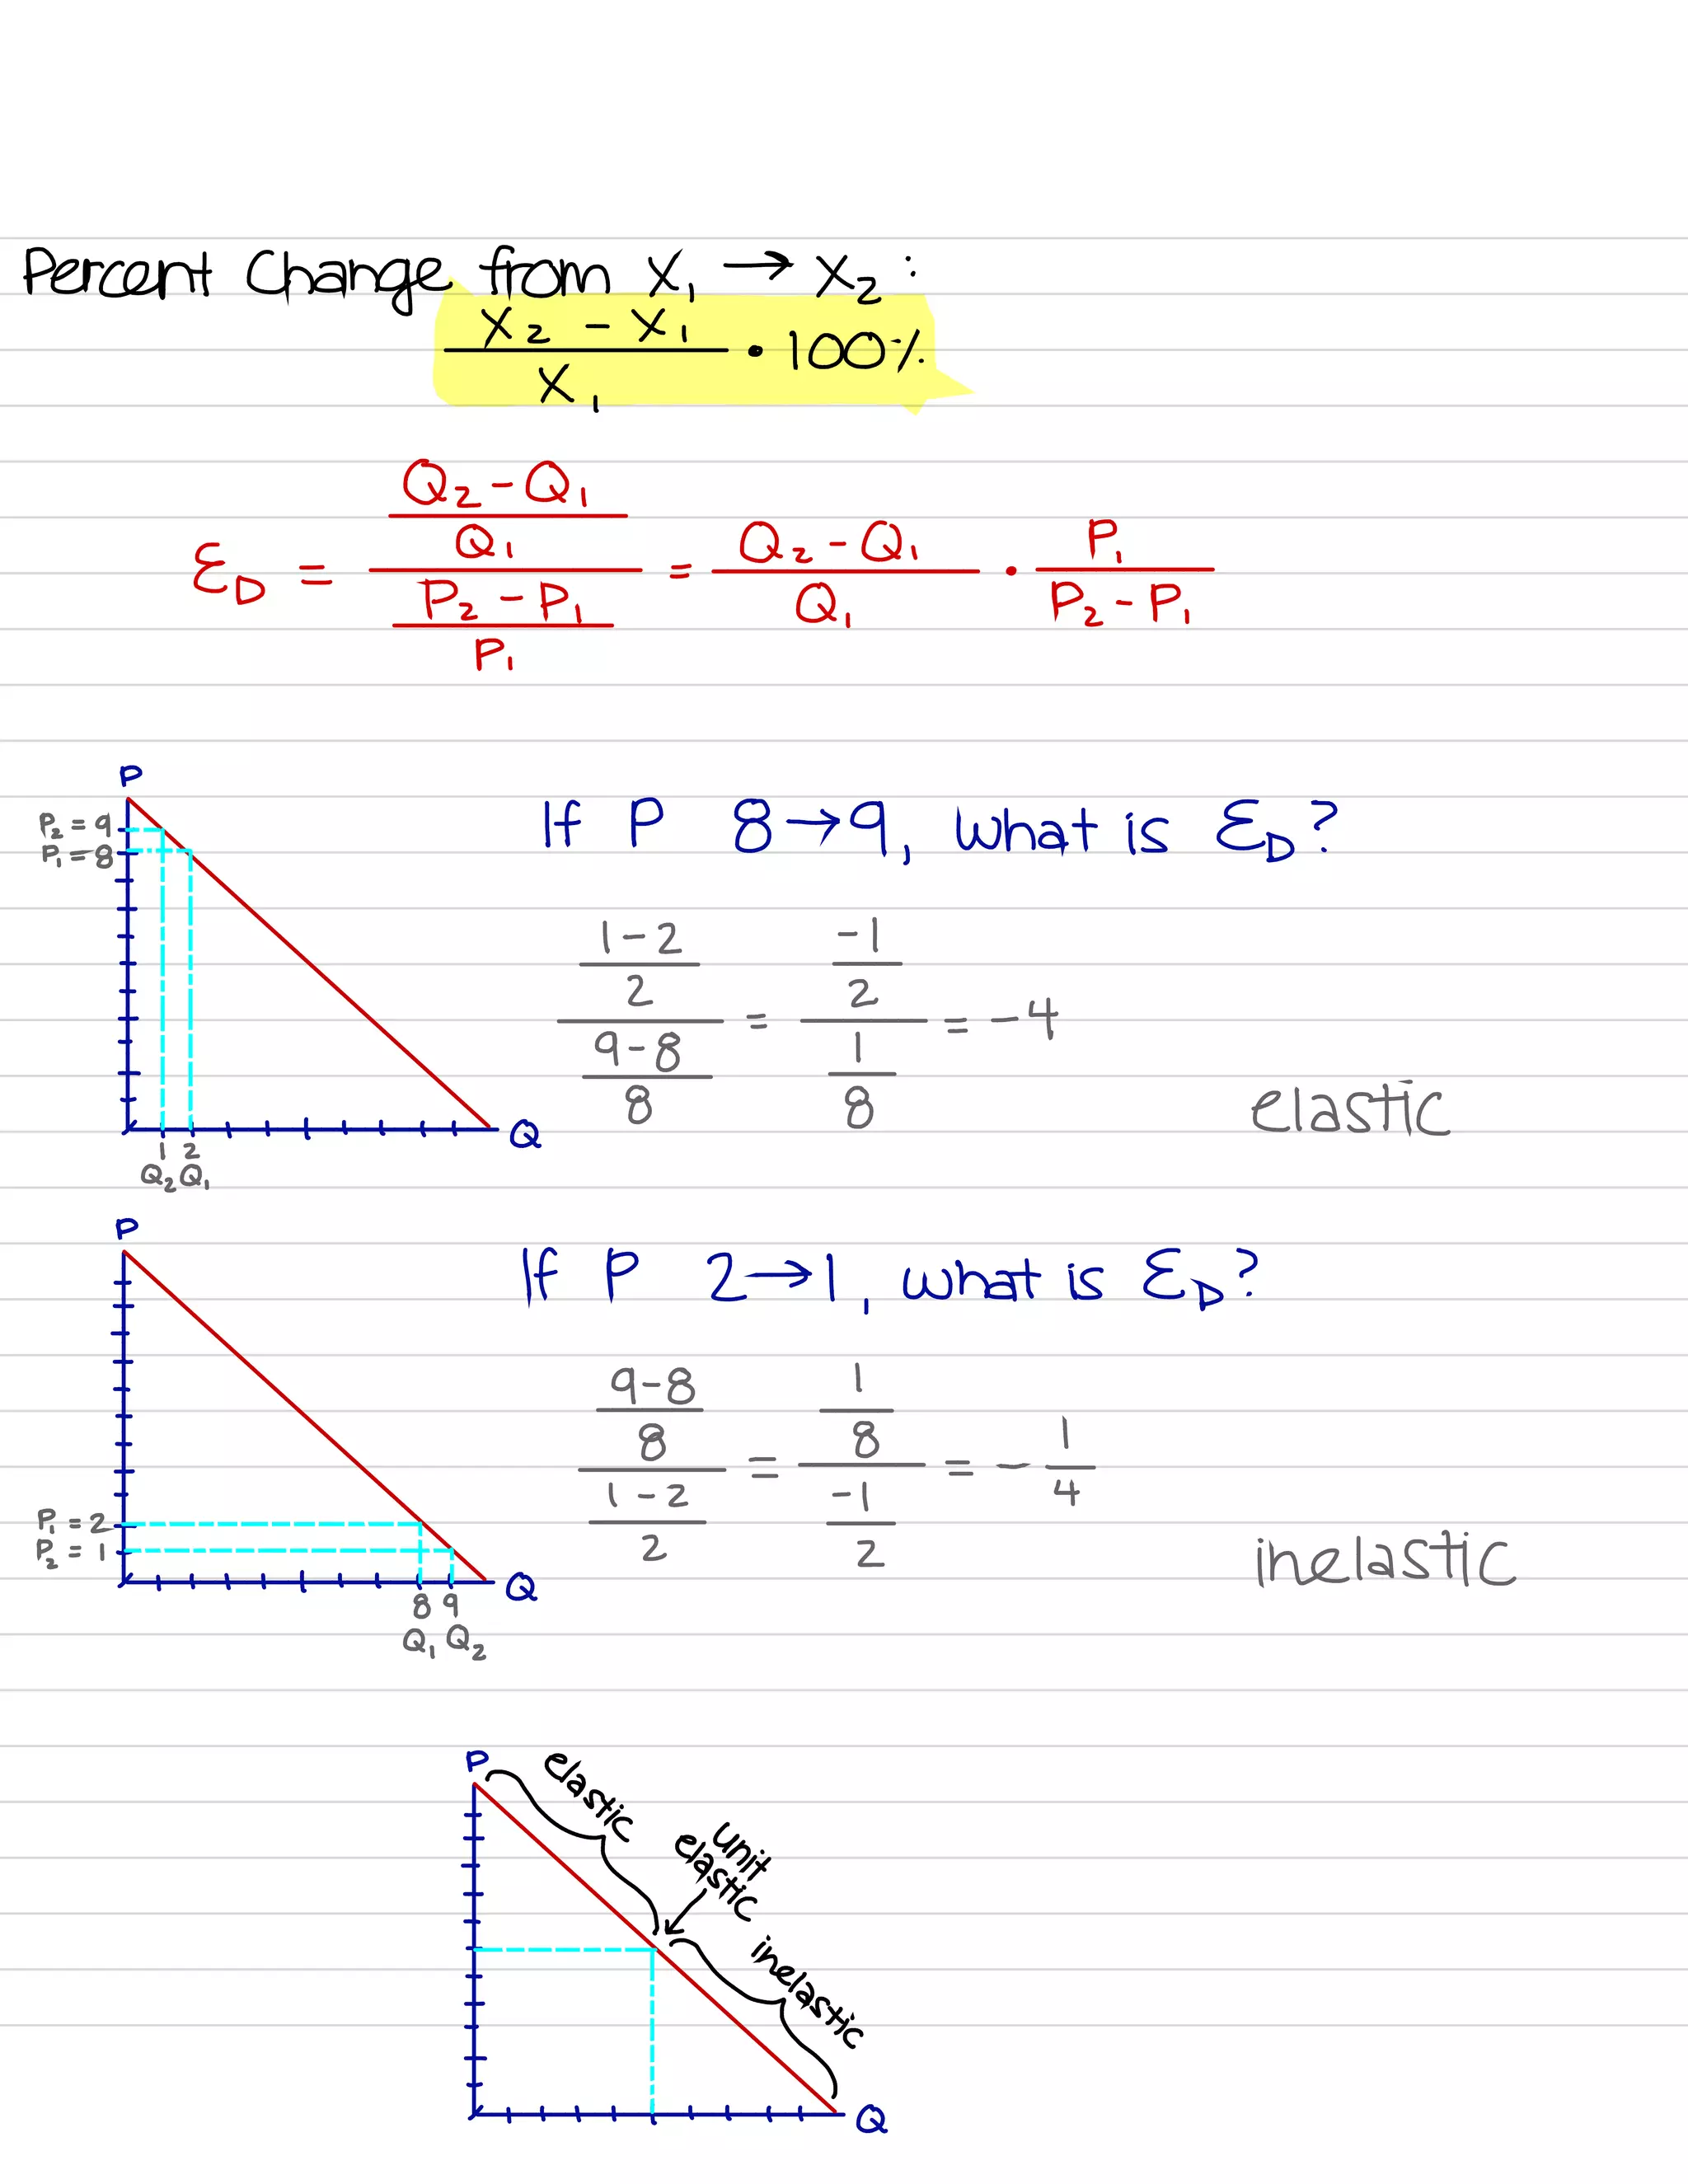 Percent Change from X₁ → X₂:
(X₂ - X₁)/X₁ • 100%
ε_D = ((Q₂-Q₁)/Q₁)/((P₂-P₁)/P₁) = (Q₂-Q₁)/Q₁ • P₁/(P₂-P₁)
P
P₂ = 9
P₁ = 8
1 2
Q₂ Q₁
Q
If P 8→9, what is ε_D?
((1-2)/2)/((9-8)/8) = (-1/2)/(1/8) = -4
elastic
P
P₁ = 2
P₂ = 1
8 9
Q₁ Q₂
Q
If P 2→1, what is ε_D?
((9-8)/8)/((1-2)/2) = (1/8)/(-1/2) = -1/4
inelastic
P
elastic
unit
elastic
inelastic
Q